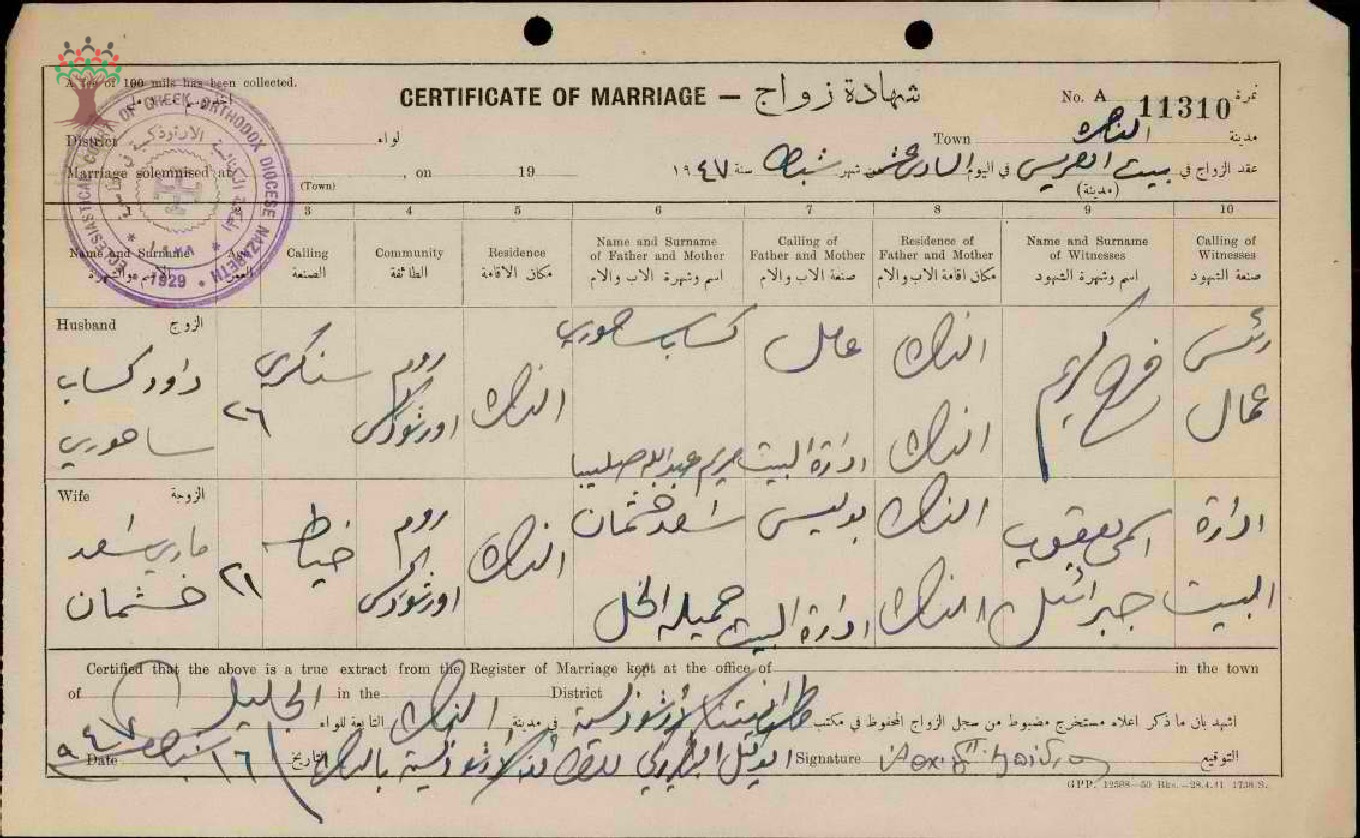 A fee of 100 mils has been collected.
CERTIFICATE OF MARRIAGE — شهادة زواج
No. A 11310 نمرة
District لواء
Town الناصره مدينة
Marriage solemnised at , on 19
(Town)
عقد الزواج في بيت العريس في اليوم السادس عشر شهر شباط سنة ١٩٤٧
(مدينة)
ECCLESIASTICAL COURT OF GREEK ORTHODOX DIOCESE NAZARETH
1929
3 4 5 6 7 8 9 10
Name and Surname
الاسم والشهرة
Age
العمر
Calling
الصنعة
Community
الطائفة
Residence
مكان الاقامة
Name and Surname
of Father and Mother
اسم وشهرة الاب والام
Calling of
Father and Mother
صنعة الاب والام
Residence of
Father and Mother
مكان اقامة الاب والام
Name and Surname
of Witnesses
اسم وشهرة الشهود
Calling of
Witnesses
صنعة الشهود
Husband الزوج
داود كساب
ساحوري
٢٦
سنكري
روم
اورثوذكس
الناصره
كساب ساحوري
مريم عبدالله صليبا
عامل
ادارة البيت
الناصره
الناصره
فرح كريم
رئيس
عمال
Wife الزوجة
ماري اسعد
خشمان
٢١
خياطه
روم
اورثوذكس
الناصره
اسعد خشمان
جميله الخل
بوليس
ادارة البيت
الناصره
الناصره
يعقوب
جبرائيل
ادارة
البيت
Certified that the above is a true extract from the Register of Marriage kept at the office of in the town
of in the District
اشهد بان ما ذكر اعلاه مستخرج مضبوط من سجل الزواج المحفوظ في مكتب في مدينة الناصره التابعة للواء الجليل
Date ١٦ شباط ٩٤٧ التاريخ
Signature التوقيع
GPP. 12588—50 Bks.—28.4.41 1738/S.